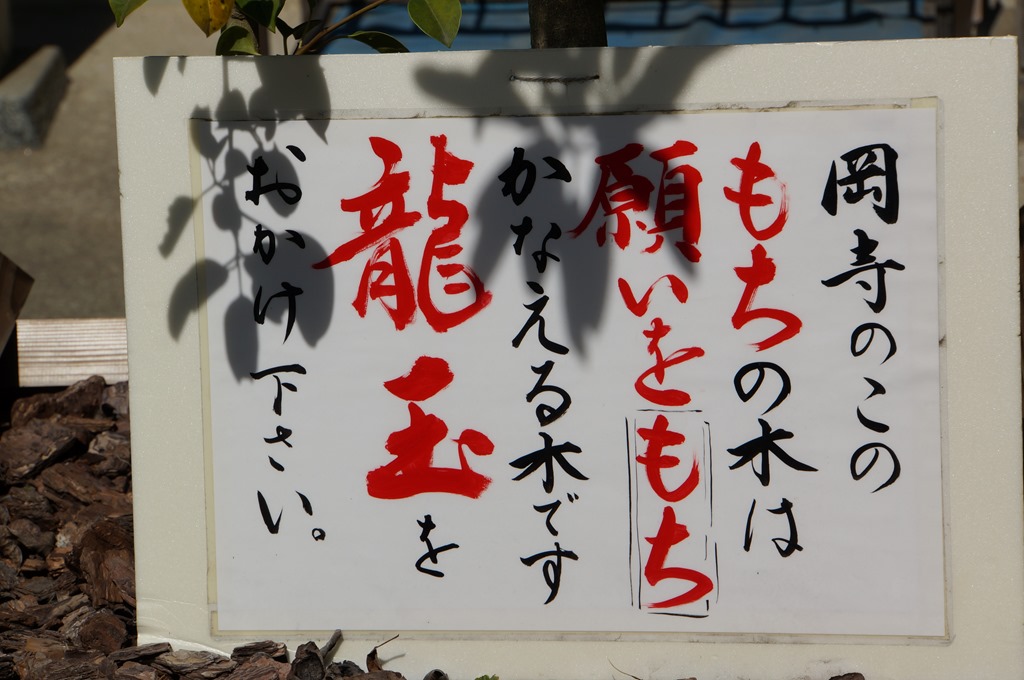 岡寺のこの
もちの木は
願いをもち
かなえる木です
龍玉を
おかけ下さい。